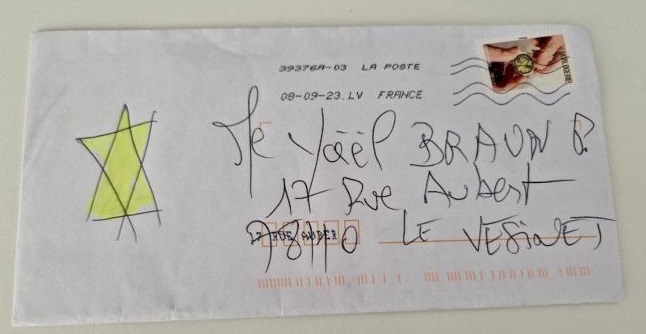 39376A-03 LA POSTE
08-09-23.LV FRANCE
Me Yaël BRAUN P.
17 Rue Aubert
RUE AUBER
78110 LE VESINET